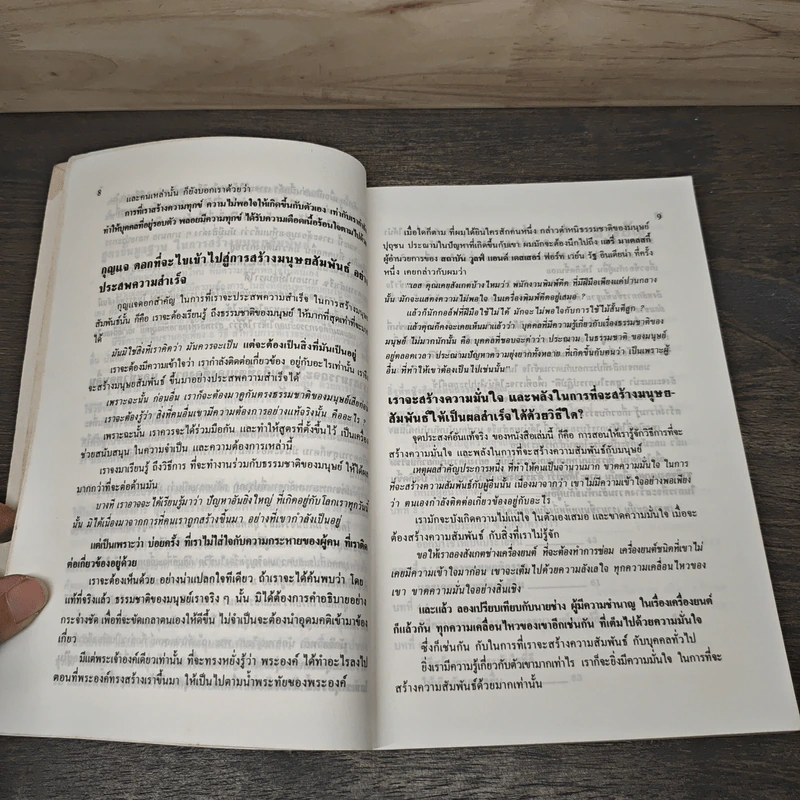 8
และคนเหล่านั้น ก็ยังบอกเราด้วยว่า
การที่เราสร้างความทุกข์ ความไม่พอใจให้เกิดขึ้นกับตัวเอง เท่ากับเรา
ทำให้บุคคลที่อยู่รอบตัว พลอยมีความทุกข์ ได้รับความเดือดเนื้อร้อนใจตามไปด้วย
กุญแจ ดอกที่จะไขเข้าไปสู่การสร้างมนุษยสัมพันธ์ อย่าง
ประสพความสำเร็จ
กุญแจดอกสำคัญ ในการที่เราจะประสพความสำเร็จ ในการสร้างมนุษย
สัมพันธ์นั้น ก็คือ เราจะต้องเรียนรู้ ถึงธรรมชาติของมนุษย์ ให้มากที่สุดเท่าที่จะมาก
ได้
มันมิใช่สิ่งที่เราคิดว่า มันควรจะเป็น แต่จะต้องเป็นสิ่งที่มันเป็นอยู่
จะต้องมีความเข้าใจว่า เรากำลังติดต่อเกี่ยวข้อง อยู่กับอะไรเท่านั้น เราจึง
จะสร้างมนุษยสัมพันธ์ ขึ้นมาอย่างประสพความสำเร็จได้
เพราะฉะนั้น ก่อนอื่น เราก็จะต้องมาดูกันตรงธรรมชาติของมนุษย์เสียก่อน
เราจะต้องรู้ว่า สิ่งที่คนอื่นเขามีความต้องการอย่างแท้จริงนั้น คืออะไร ?
เพราะฉะนั้น เราควรจะได้ร่วมมือกัน และทำให้สูตรที่ตั้งขึ้นไว้ เป็นเครื่อง
ช่วยสนับสนุน ในความจำเป็น และความต้องการเหล่านี้
เราจงมาเรียนรู้ ถึงวิธีการ ที่จะทำงานร่วมกับธรรมชาติของมนุษย์ ให้ได้ผล
มากกว่าที่จะต่อต้านมัน
บางที เราอาจจะได้เรียนรู้มาว่า ปัญหาอันยิ่งใหญ่ ที่เกิดอยู่กับโลกเราทุกวันนี้
นั้น มิได้เนื่องมาจากการที่คนเราถูกสร้างขึ้นมา อย่างที่เขากำลังเป็นอยู่
แต่เป็นเพราะว่า บ่อยครั้ง ที่เราไม่ใส่ใจกับความกระหายของผู้คน ที่เราติด
ต่อเกี่ยวข้องอยู่ด้วย
เราจะต้องเห็นด้วย อย่างน่าแปลกใจทีเดียว ถ้าเราจะได้ค้นพบว่า โดย
แท้ที่จริงแล้ว ธรรมชาติของมนุษย์เราจริง ๆ นั้น มิได้ต้องการคำอธิบายอย่าง
กระจ่างชัด เพื่อที่จะขัดเกลาตนเองให้ดีขึ้น ไม่จำเป็นจะต้องนำอุดมคติเข้ามาข้อง
เกี่ยว
มีแต่พระเจ้าองค์เดียวเท่านั้น ที่จะทรงหยั่งรู้ว่า พระองค์ ได้ทำอะไรลงไป
ตอนที่พระองค์ทรงสร้างเราขึ้นมา ให้เป็นไปตามน้ำพระทัยของพระองค์
9
เมื่อใดก็ตาม ที่ผมได้ยินใครสักคนหนึ่ง กล่าวตำหนิธรรมชาติของมนุษย์
ปุถุชน ประณามในปัญหาที่เกิดขึ้นกับเขา ผมมักจะต้องนึกไปถึง แฮรี่ มาเตสสกี้
ผู้อำนวยการของ สถาบัน วูลฟ์ แอนด์ เดสเสอร์ ฟอร์ท เวย์น รัฐ อินเดียน่า ที่ครั้ง
หนึ่ง เคยกล่าวกับผมว่า
"เลส คุณเคยสังเกตบ้างไหมว่า พนักงานพิมพ์ดีด ที่มีฝีมือเพียงแค่ปวกเปียก
กลางนั้น มักจะแสดงความไม่พอใจ ในเครื่องพิมพ์ดีดอยู่เสมอ ?
แล้วก็นักกอล์ฟที่มีมือใช้ไม่ได้ มักจะไม่พอใจกับการใช้ไม้สั้นที่สุด ?
แล้วคุณก็คงจะเคยเห็นมาแล้วว่า บุคคลที่มีความรู้เกี่ยวกับเรื่องธรรมชาติของ
มนุษย์ ไม่มากนักนั้น คือ บุคคลที่ชอบจะด่าว่า ประณาม ในธรรมชาติ ของมนุษย์
อยู่ตลอดเวลา ประณามปัญหาความยุ่งยากทั้งหลาย ที่เกิดขึ้นกับตนว่า เป็นเพราะผู้
อื่น ที่ทำให้เขาต้องเป็นไปเช่นนั้น"
เราจะสร้างความมั่นใจ และพลังในการที่จะสร้างมนุษย-
สัมพันธ์ให้เป็นผลสำเร็จได้ด้วยวิธีใด?
จุดประสงค์อันแท้จริง ของหนังสือเล่มนี้ ก็คือ การสอนให้เรารู้จักวิธีการที่จะ
สร้างความมั่นใจ และพลังในการที่จะสร้างความสัมพันธ์กับมนุษย์
เหตุผลสำคัญประการหนึ่ง ที่ทำให้คนเป็นจำนวนมาก ขาดความมั่นใจ ในการ
ที่จะสร้างความสัมพันธ์กับผู้อื่นนั้น เนื่องมาจากว่า เขาไม่มีความเข้าใจอย่างพอเพียง
ว่า ตนเองกำลังติดต่อเกี่ยวข้องอยู่กับอะไร
เรามักจะบังเกิดความไม่แน่ใจ ในตัวเองเสมอ และขาดความมั่นใจ เมื่อจะ
ต้องสร้างความสัมพันธ์ กับสิ่งที่เราไม่รู้จัก
ขอให้เราลองสังเกตช่างเครื่องยนต์ ที่จะต้องทำการซ่อม เครื่องยนต์ชนิดที่เขาไม่
เคยมีความเข้าใจมาก่อน เขาจะเต็มไปด้วยความลังเลใจ ทุกความเคลื่อนไหวของ
เขา ขาดความมั่นใจอย่างสิ้นเชิง
และแล้ว ลองเปรียบเทียบกับนายช่าง ผู้มีความชำนาญ ในเรื่องเครื่องยนต์
ก็แล้วกัน ทุกความเคลื่อนไหวของเขาอีกเช่นกัน ที่เต็มไปด้วยความมั่นใจ
ซึ่งก็เช่นกัน กับในการที่เราจะสร้างความสัมพันธ์ กับบุคคลทั่วไป
ยิ่งเรามีความรู้เกี่ยวกับตัวเขามากเท่าไร เราก็จะยิ่งมีความมั่นใจ ในการที่จะ
สร้างความสัมพันธ์ด้วยมากเท่านั้น